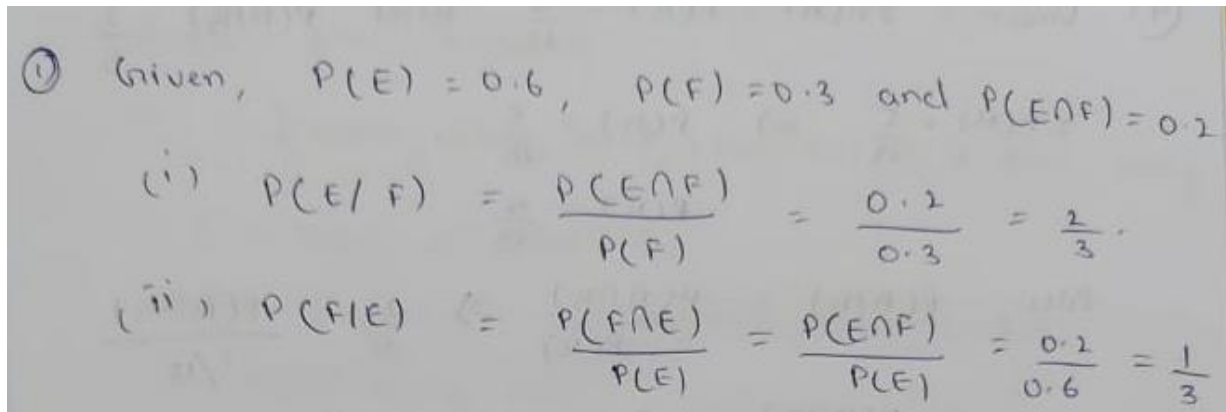 ① Given, P(E) = 0.6, P(F) = 0.3 and P(E∩F) = 0.2
(i) P(E/F) = P(E∩F)/P(F) = 0.2/0.3 = 2/3.
(ii) P(F|E) = P(F∩E)/P(E) = P(E∩F)/P(E) = 0.2/0.6 = 1/3